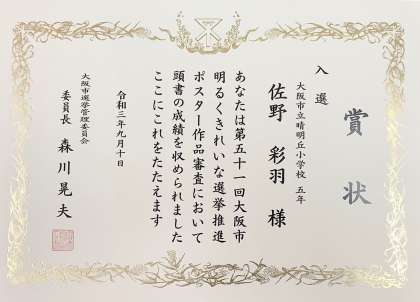 賞状
入選
大阪市立晴明丘小学校 五年
佐野 彩羽 様
あなたは第五十一回大阪市
明るくきれいな選挙推進
ポスター作品審査において
頭書の成績を収められました
ここにこれをたたえます
令和三年九月十日
大阪市選挙管理委員会
委員長 森川晃夫